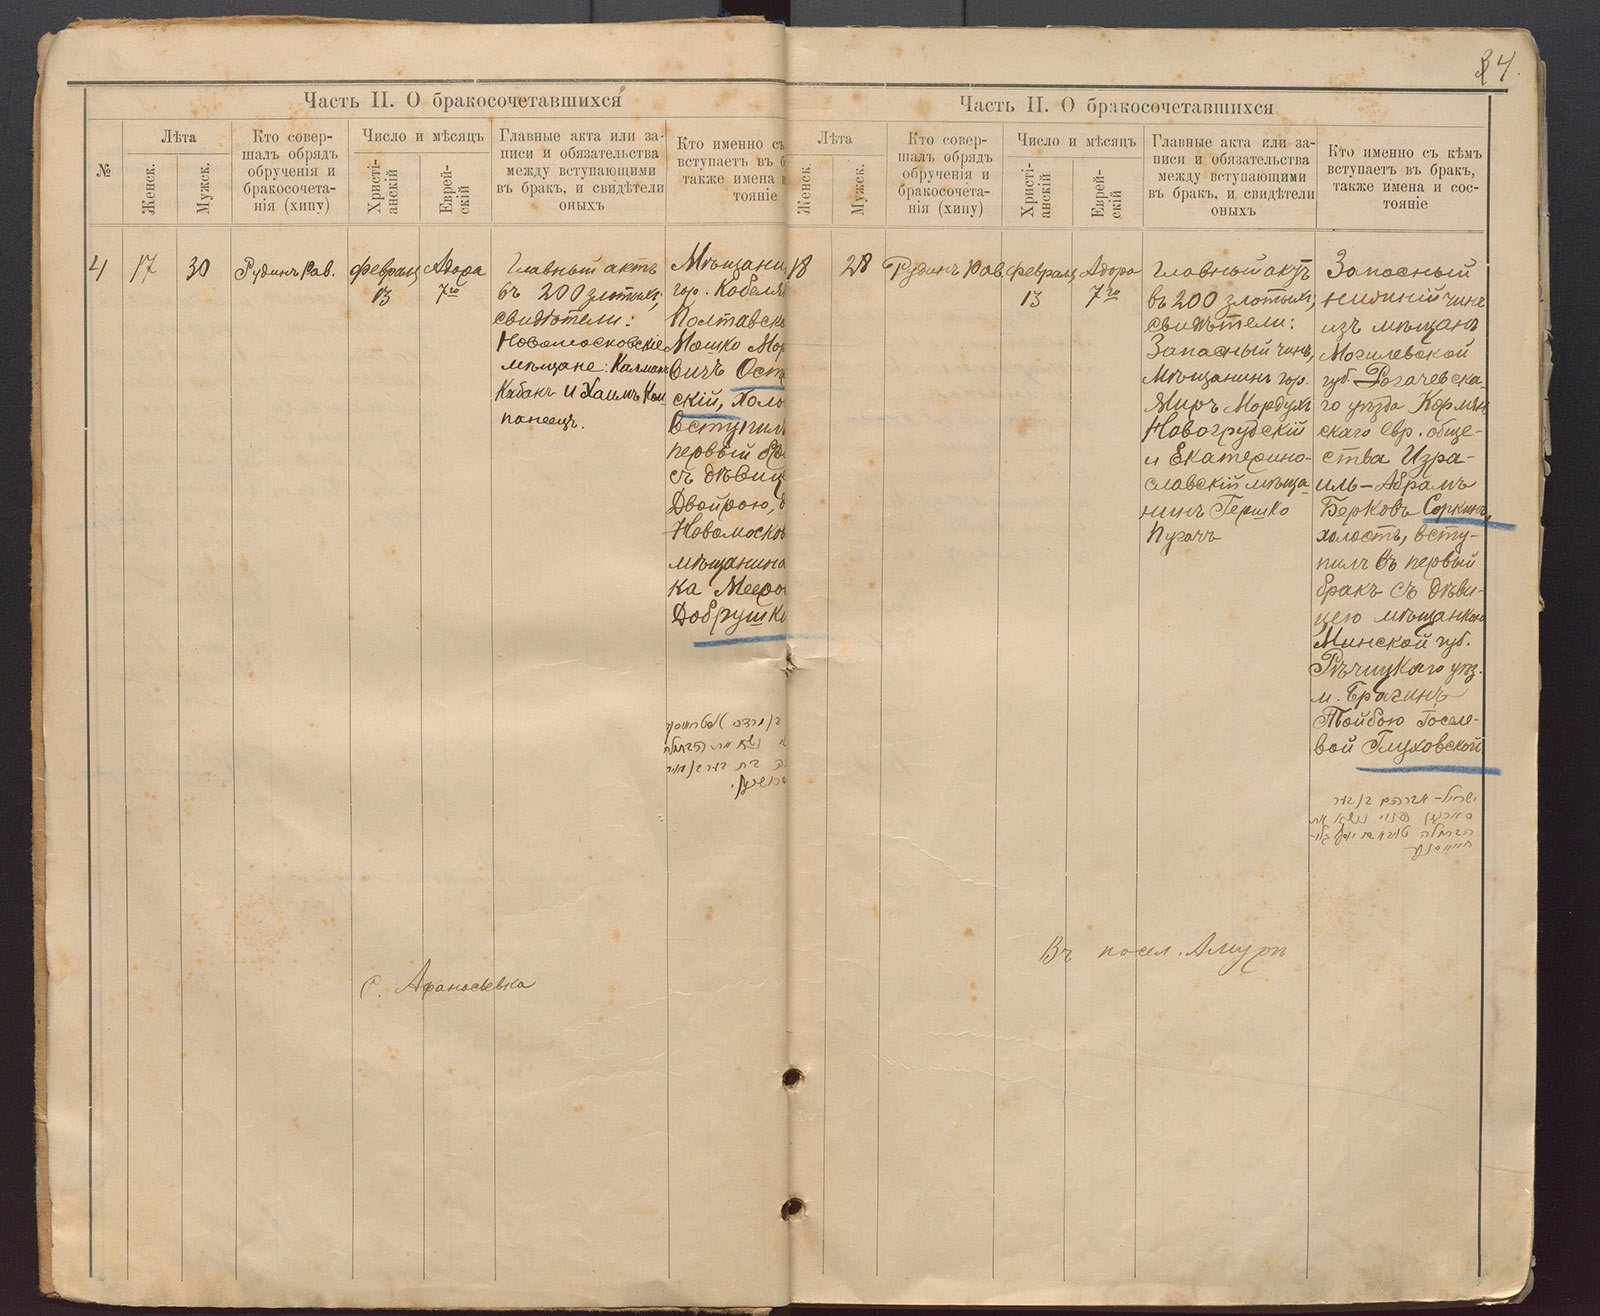 34.
Часть II. О бракосочетавшихся
№
Лѣта
Женск.
Мужск.
Кто совер-
шалъ обрядъ
обрученія и
бракосочета-
нія (хипу)
Число и мѣсяцъ
Христі-
анскій
Еврей-
скій
Главные акта или за-
писи и обязательства
между вступающими
въ бракъ, и свидѣтели
оныхъ
Кто именно съ
вступаетъ въ б
также имена и
тояніе
4
17
30
Рудинъ Рав.
февраля
13
Адора
7го
Главный актъ
въ 200 злотыхъ;
свидѣтели:
Новомосковскіе
мѣщане: Калманъ
Кабакъ и Хаимъ Ком
панеецъ.
Мѣщани
гор. Кобеля
Полтавско
Мошко Мор
вичъ Ост
скій, холо
вступилъ
первый
съ дѣвиц
Двойрою,
Новомосков
мѣщанина
ка Мееро
Добрушк
С. Афанасьевка
Часть II. О бракосочетавшихся
Лѣта
Женск.
Мужск.
Кто совер-
шалъ обрядъ
обрученія и
бракосочета-
нія (хипу)
Число и мѣсяцъ
Христі-
анскій
Еврей-
скій
Главные акта или за-
писи и обязательства
между вступающими
въ бракъ, и свидѣтели
оныхъ
Кто именно съ кѣмъ
вступаетъ въ бракъ,
также имена и сос-
тояніе
18
28
Рудинъ Рав
февраля
13
Адора
7го
Главный актъ
въ 200 злотыхъ,
свидѣтели:
Запасный чинъ,
мѣщанинъ гор.
Мордухъ
Новогрудскій
и Екатерино-
славскій мѣща-
нинъ Гершко
Пугачъ
Запасный
нижній чинъ
изъ мѣщанъ
Могилевской
губ. Рогачевска-
го уѣзда Кормян
скаго евр. обще-
ства Изра-
иль-Абрамъ
Берковъ Соркинъ,
холостъ, всту-
пилъ въ первый
бракъ съ дѣви-
цею мѣщанкою
Минской губ.
Рѣчицкаго уѣз.
м. Брагинъ
Тойбою Госеле-
вой Глуховской
ישראל-אברהם בן בער
סארקין פנוי נשא את
הבתולה טויבא בת יוסף גלו-
Въ посел. Амуръ